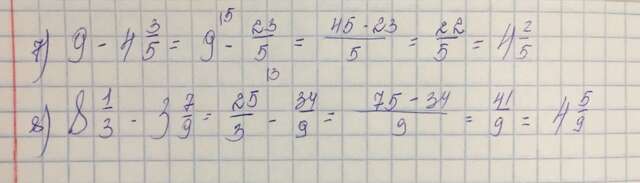 7) 9 - 4 3/5 = 9^15 - 23/5 = (45 - 23)/5 = 22/5 = 4 2/5
13
8) 8 1/3 - 3 7/9 = 25/3 - 34/9 = (75 - 34)/9 = 41/9 = 4 5/9